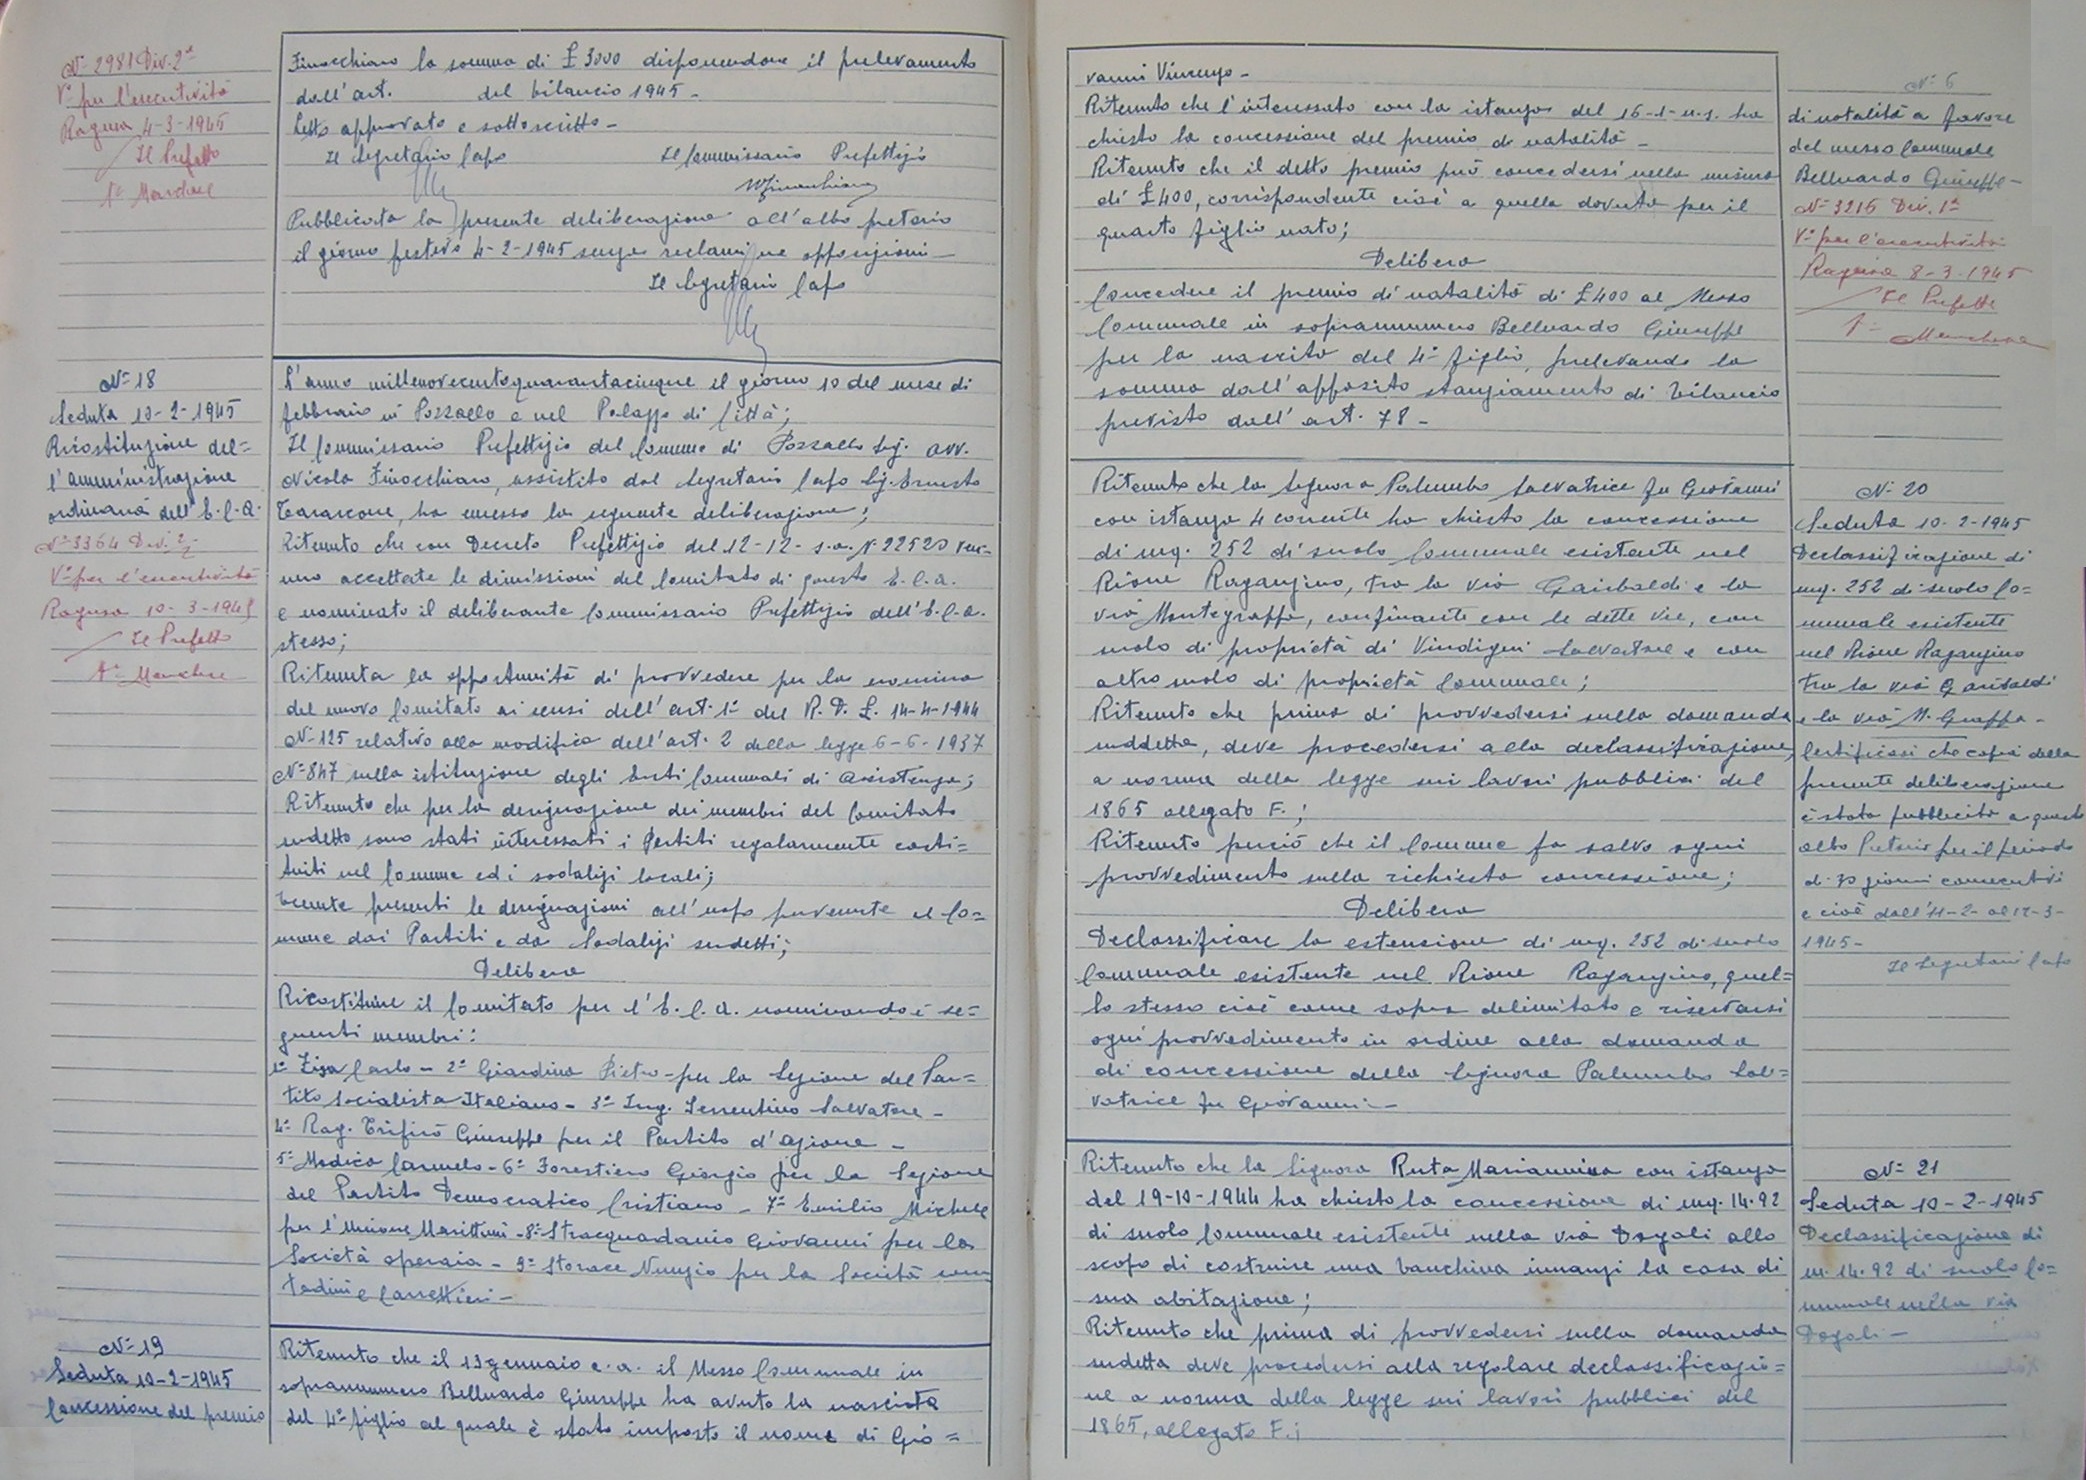 N° 2981 Div. 2ª
V° per l'esecutività
Ragusa 4-3-1945
Il Prefetto
Finocchiaro la somma di £ 3000 disponendone il prelevamento
dall'art. del bilancio 1945 -
Letto approvato e sottoscritto -
Il Segretario Capo Il Commissario Prefettizio
Pubblicata la presente deliberazione all'albo pretorio
il giorno festivo 4-2-1945 senza reclami ne opposizioni -
Il Segretario Capo
N° 18
Seduta 10-2-1945
Ricostituzione del=
l'amministrazione
ordinaria dell'E.C.A.
N° 3364 Div. 2ª
V° per l'esecutività
Ragusa 10-3-1945
Il Prefetto
L'anno millenovecentoquarantacinque il giorno 10 del mese di
febbraio in Pozzallo e nel Palazzo di Città;
Il Commissario Prefettizio del Comune di Pozzallo Sig. avv.
Nicola Finocchiaro, assistito dal Segretario Capo Sig. Ernesto
Tarascone, ha emesso la seguente deliberazione;
Ritenuto che con Decreto Prefettizio del 12-12-s.a. N. 22520 ven-
nero accettate le dimissioni del Comitato di questo E.C.A.
e nominato il deliberante Commissario Prefettizio dell'E.C.A.
stesso;
Ritenuta la opportunità di provvedere per la nomina
del nuovo Comitato ai sensi dell'art. 1° del R.D.L. 14-4-1944
N° 125 relativo alla modifica dell'art. 2 della legge 6-6-1937
N° 847 sulla istituzione degli Enti Comunali di Assistenza;
Ritenuto che per la designazione dei membri del Comitato
sudetto sono stati interessati i Partiti regolarmente costi=
tuiti nel Comune ed i sodalizi locali;
Tenute presenti le designazioni all'uopo pervenute al Co=
mune dai Partiti e da Sodalizi sudetti;
Delibera
Ricostituire il Comitato per l'E.C.A. nominando i se=
guenti membri:
1° Zisa Carlo - 2° Giardina Pietro - per la Sezione del Par=
tito Socialista Italiano - 3° Ing. Serrentino Salvatore -
4° Rag. Trifirò Giuseppe per il Partito d'azione -
5° Modica Carmelo - 6° Forestiero Giorgio per la Sezione
del Partito Democratico Cristiano - 7° Emilio Michele
per l'Unione Marittimi - 8° Stracquadanio Giovanni per la
Società operaia - 9° Storace Nunzio per la Società con
tadini e Carrettieri -
N° 19
Seduta 10-2-1945
Concessione del premio
Ritenuto che il 13 gennaio c.a. il Messo Comunale in
soprannumero Belluardo Giuseppe ha avuto la nascita
del 4° figlio al quale è stato imposto il nome di Gio=
vanni Vincenzo -
Ritenuto che l'interessato con la istanza del 16-1-u.s. ha
chiesto la concessione del premio di natalità -
Ritenuto che il detto premio può concedersi nella misura
di £ 400, corrispondente cioè a quella dovuta per il
quarto figlio nato;
Delibera
Concedere il premio di natalità di £ 400 al Messo
Comunale in soprannumero Belluardo Giuseppe
per la nascita del 4° figlio, prelevando la
somma dall'apposito stanziamento di bilancio
previsto dall'art. 78 -
N° 6
di natalità a favore
del messo Comunale
Belluardo Giuseppe -
N° 3216 Div. 1ª
V° per l'esecutività
Ragusa 8-3-1945
Il Prefetto
Ritenuto che la Signora Palumbo Salvatrice fu Giovanni
con istanza 4 corrente ha chiesto la concessione
di mq. 252 di suolo Comunale esistente nel
Rione Raganzino, tra la via Garibaldi e la
via Montegrappa, confinante con le dette vie, con
suolo di proprietà di Vindigni Salvatore e con
altro suolo di proprietà Comunale;
Ritenuto che prima di provvedersi sulla domanda
suddetta, deve procedersi alla declassificazione,
a norma della legge sui lavori pubblici del
1865 allegato F.;
Ritenuto perciò che il Comune fa salvo ogni
provvedimento sulla richiesta concessione;
Delibera
Declassificare la estensione di mq. 252 di suolo
Comunale esistente nel Rione Raganzino, quel=
lo stesso cioè come sopra delimitato e riservarsi
ogni provvedimento in ordine alla domanda
di concessione della Signora Palumbo Sal=
vatrice fu Giovanni -
N° 20
Seduta 10-2-1945
Declassificazione di
mq. 252 di suolo Co=
munale esistente
nel Rione Raganzino
tra la via Garibaldi
e la via M. Grappa -
Certificasi che copia della
presente deliberazione
è stata pubblicata a questo
albo Pretorio per il periodo
di 30 giorni consecutivi
e cioè dall'11-2- al 12-3-
1945 -
Il Segretario Capo
Ritenuto che la Signora Ruta Mariannina con istanza
del 19-10-1944 ha chiesto la concessione di mq. 14.92
di suolo Comunale esistente nella via Dogali allo
scopo di costruire una banchina innanzi la casa di
sua abitazione;
Ritenuto che prima di provvedersi sulla domanda
sudetta deve procedersi alla regolare declassificazio=
ne a norma della legge sui lavori pubblici del
1865, allegato F.;
N° 21
Seduta 10-2-1945
Declassificazione di
m. 14.92 di suolo Co=
munale nella via
Dogali -